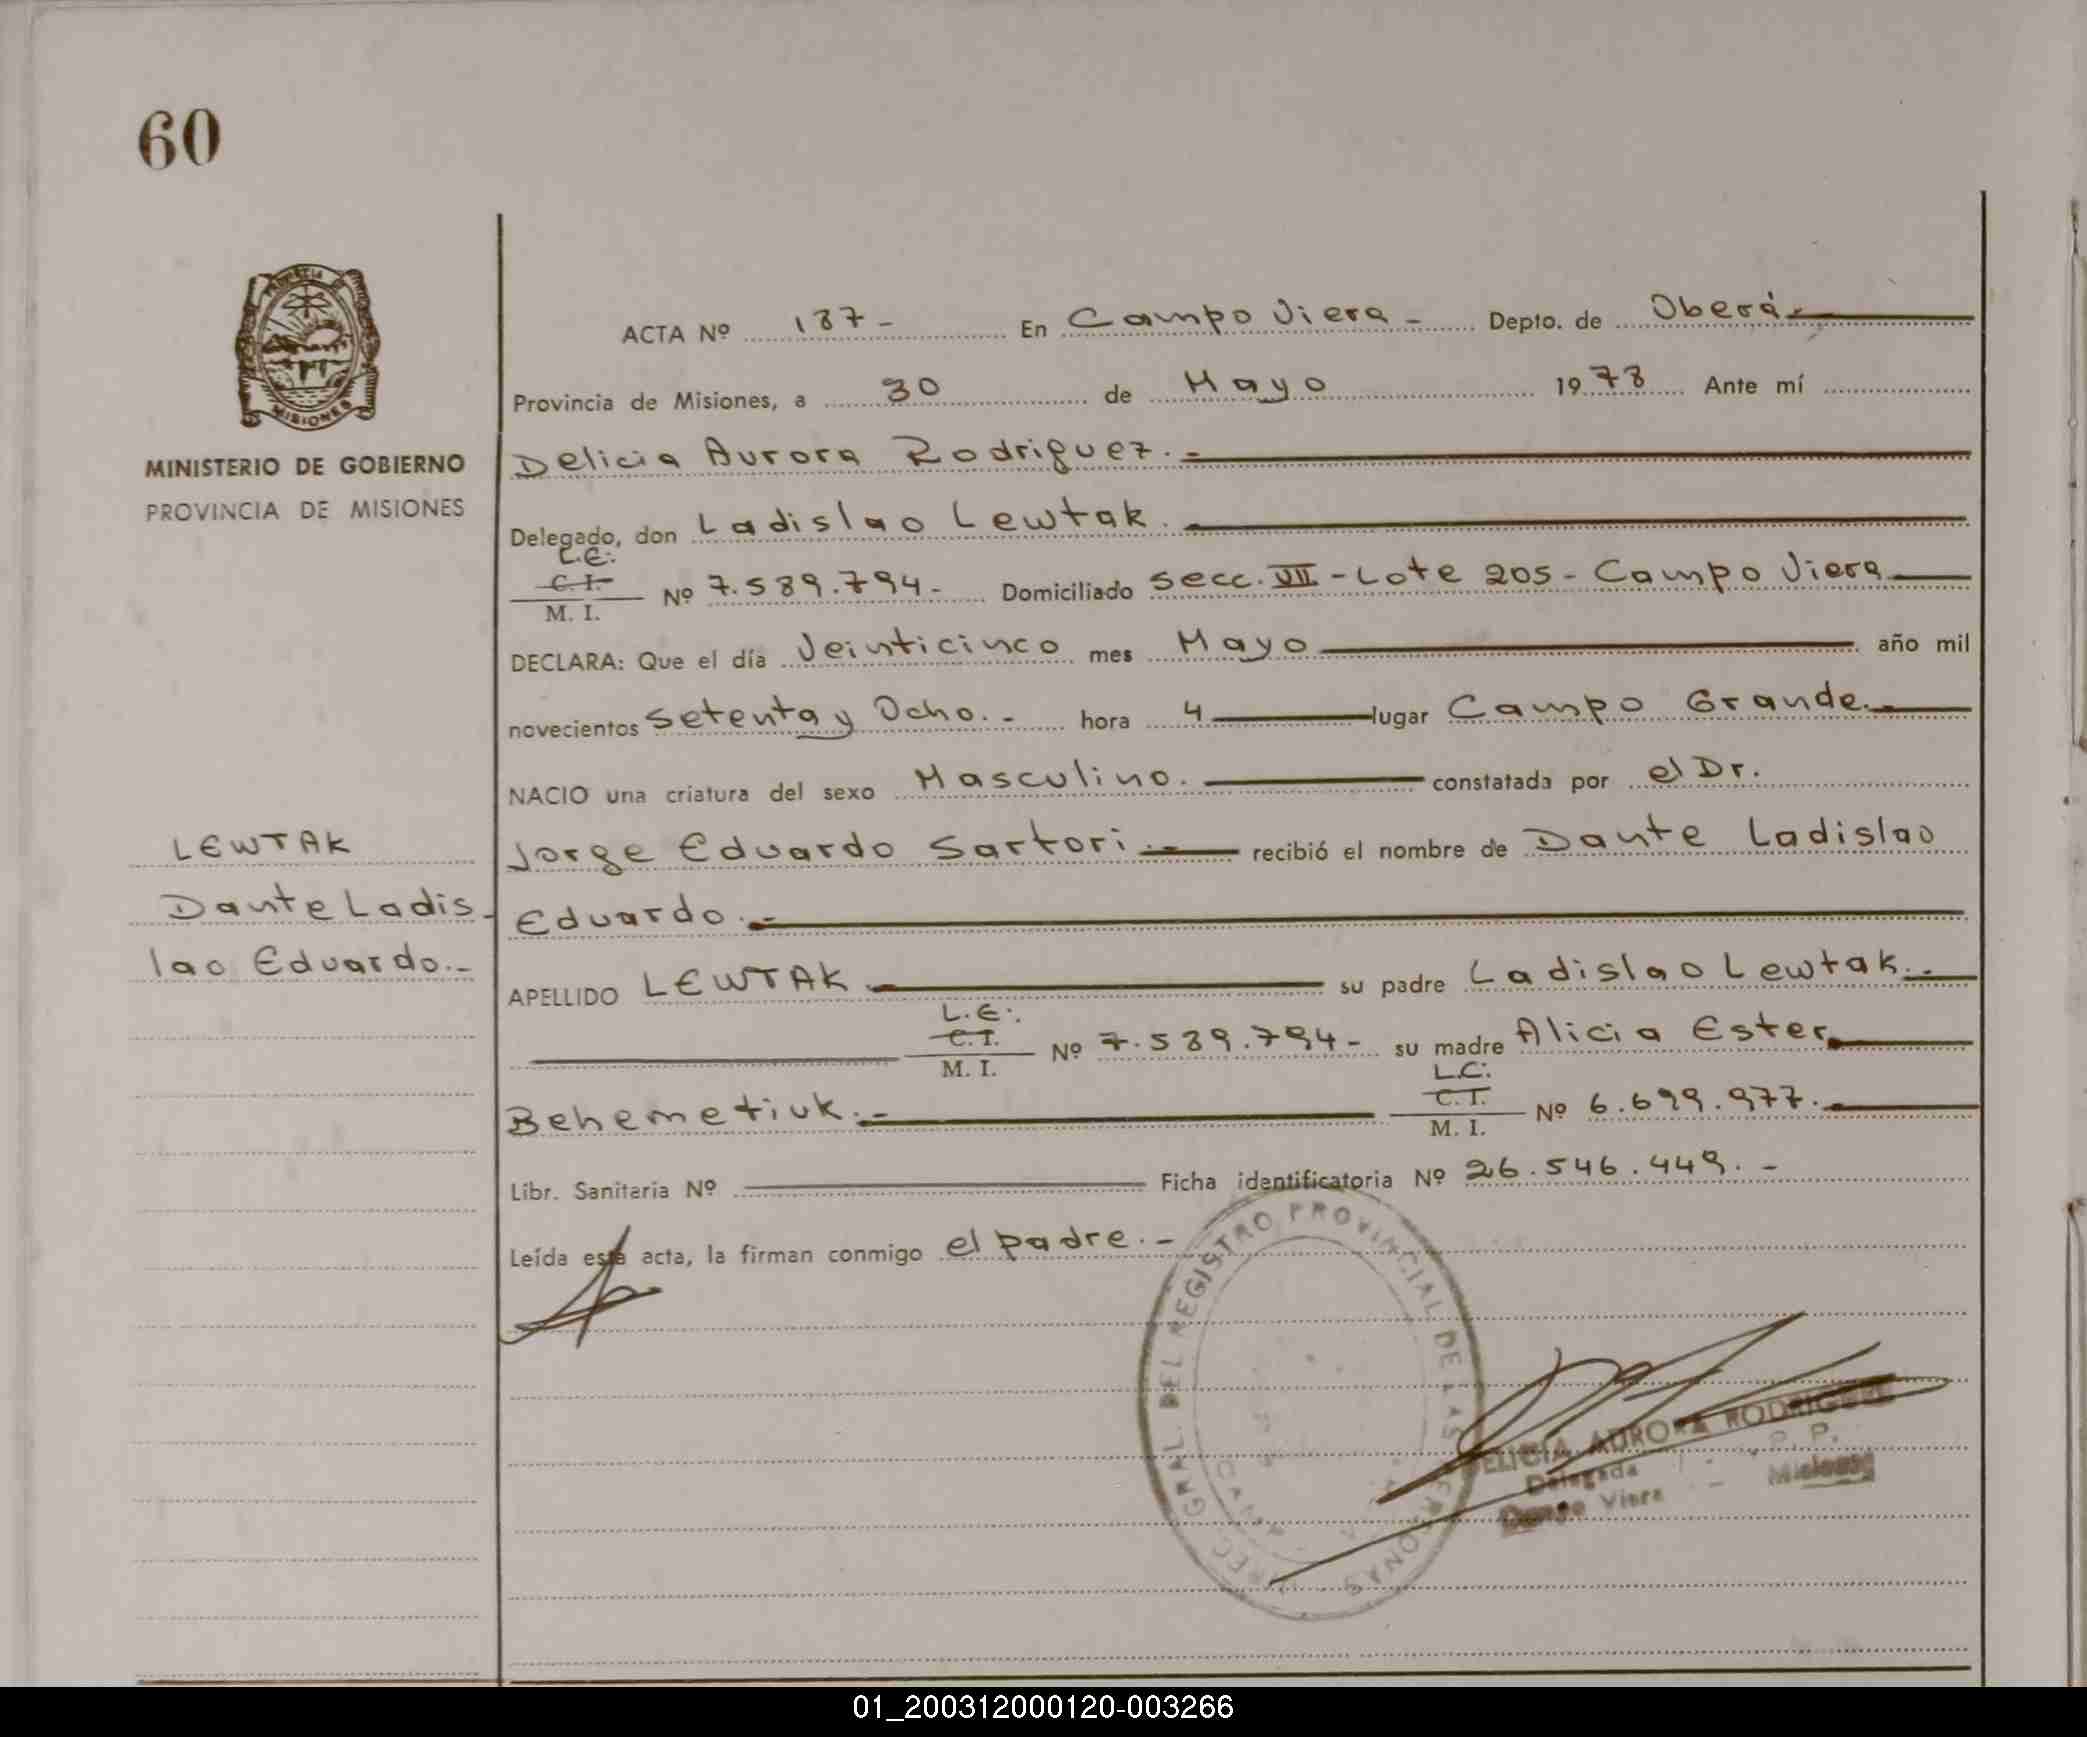 60
PROVINCIA
MISIONES
MINISTERIO DE GOBIERNO
PROVINCIA DE MISIONES
ACTA Nº 187- En Campo Viera - Depto. de Oberá-
Provincia de Misiones, a 30 de Mayo 1978 Ante mí
Delicia Aurora Rodriguez.-
Delegado, don Ladislao Lewtak.
L.E:
C. I.
M. I. Nº 7.589.794- Domiciliado Secc. VII - Lote 205 - Campo Viera
DECLARA: Que el día Veinticinco mes Mayo año mil
novecientos Setenta y Ocho.- hora 4 lugar Campo Grande.-
NACIO una criatura del sexo Masculino. constatada por el Dr.
Jorge Eduardo Sartori.- recibió el nombre de Dante Ladislao
Eduardo.-
LEWTAK
Dante Ladis-
lao Eduardo.-
APELLIDO LEWTAK su padre Ladislao Lewtak.-
L.E:.
C. I.
M. I. Nº 7.589.794- su madre Alicia Ester
Behemetiuk.-
L.C:
C. I.
M. I. Nº 6.699.977.-
Libr. Sanitaria Nº Ficha identificatoria Nº 26.546.449.-
Leída esta acta, la firman conmigo el padre.-
DIREC. GRAL. DEL REGISTRO PROVINCIAL DE LAS PERSONAS
DELICIA AURORA RODRIGUEZ
Delegada P. P.
Campo Viera - Misiones
01_200312000120-003266